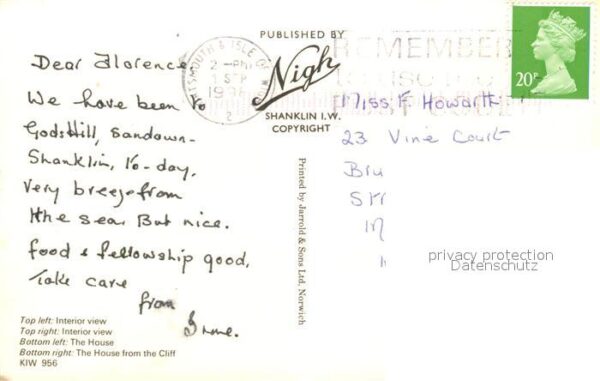 Dear Florence
We have been to
Godshill, Sandown
Shanklin, to-day.
Very breeze from
the sea. But nice.
food & fellowship good,
Take care
from
Irene.
Top left: Interior view
Top right: Interior view
Bottom left: The House
Bottom right: The House from the Cliff
KIW 956
PUBLISHED BY
Nigh
SHANKLIN I.W.
COPYRIGHT
Printed by Jarrold & Sons Ltd, Norwich
PORTSMOUTH & ISLE OF
2 - PM
1 SEP
1998
2
REMEMBER
20P
Miss F Howarth
23 Vine Court
Bru
privacy protection
Datenschutz